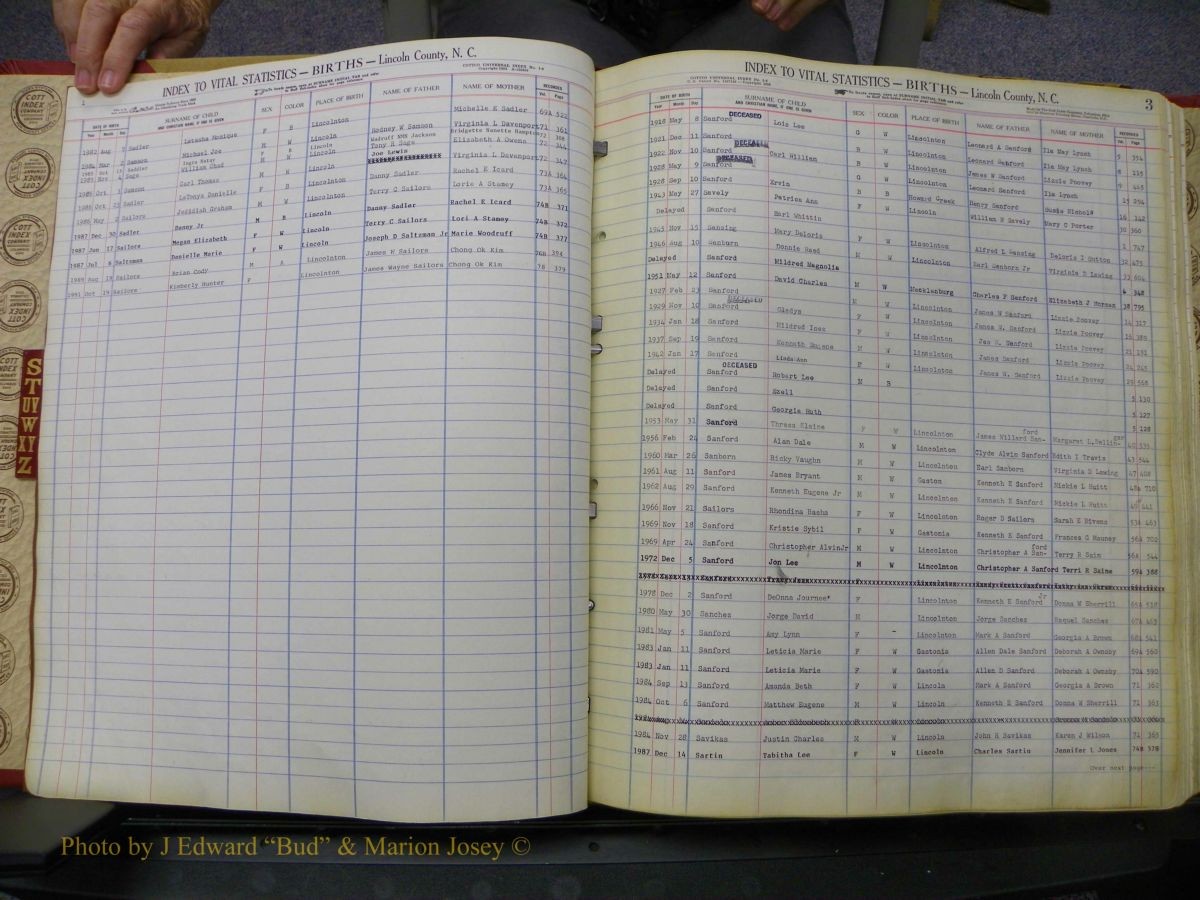 INDEX TO VITAL STATISTICS — BIRTHS — Lincoln County, N. C.
COTT'S UNIVERSAL INDEX No. 14
DATE OF BIRTH
SURNAME OF CHILD
AND CHRISTIAN NAME, IF ONE IS GIVEN
SEX COLOR PLACE OF BIRTH NAME OF FATHER NAME OF MOTHER RECORDED
Year Month Day Vol. Page
1982 Aug 7 Sadler Latasha Monique F B Lincolnton Michelle E Sadler 69A 522
1984 Mar 2 Samson Michael Joe M W Lincoln Rodney W Samson Virginia L Davenport 71 361
Saddler Lincoln
1985 Nov 4 Sage Lincoln Tony R Sage Elisabeth A Owens 72 344
1986 Oct 1 Samson Carl Thomas M W Lincoln Joe Lewis Virginia L Davenport 72 347
1986 Oct 23 Sadler LaTonya Danielle F B Lincolnton Danny Sadler Rachel E Icard 73A 364
1986 May 2 Sailors Jedidiah Graham M W Lincolnton Terry C Sailors Lorie A Stamey 73A 365
1987 Dec 30 Sadler Danny Jr M B Lincoln Danny Sadler Rachel E Icard 74B 371
1987 Jun 17 Sailors Megan Elizabeth F W Lincoln Terry C Sailors Lori A Stamey 74B 372
1987 Jul 8 Saltzman Danielle Marie F W Lincoln Joseph D Saltzman Jr Marie Woodruff 74B 377
1989 Aug 19 Sailors Brian Cody M A Lincoln James H Sailors Chong Ok Kim 76B 394
1991 Oct 19 Sailors Kimberly Hunter F Lincolnton James Wayne Sailors Chong Ok Kim 78 379
INDEX TO VITAL STATISTICS — BIRTHS — Lincoln County, N. C.
3
COTT'S UNIVERSAL INDEX No. 14
DATE OF BIRTH
SURNAME OF CHILD
AND CHRISTIAN NAME, IF ONE IS GIVEN
SEX COLOR PLACE OF BIRTH NAME OF FATHER NAME OF MOTHER RECORDED
Year Month Day Vol. Page
DECEASED
1918 May 8 Sanford Lois Lee G W Lincolnton Leonard A Sanford Ila May Lynch 5 354
1921 Dec 11 Sanford B W Lincolnton Leonard Sanford Ila May Lynch 8 115
DECEASED
1922 Nov 10 Sanford Carl William B W Lincolnton James W Sanford Lizzie Poovey 9 445
DECEASED
1928 May 9 Sanford B W Lincolnton Leonard Sanford Ila Lynch 15 254
1928 Sep 10 Sanford Ervin G W Lincolnton Henry Sanford Susie Nichols 16 342
1943 May 27 Savely Patricia Ann F W Howard Creek William R Savely Mary C Porter 30 360
Delayed Sanford Earl Whittin Lincoln 1 747
1945 Nov 15 Sansing Mary Deloris F W Lincolnton Alfred L Sansing Deloris I Sutton 32 475
1946 Aug 10 Sanburn Donnie Reed M W Lincolnton Earl Sanborn Jr Virginia D Lawing 33 604
Delayed Sanford Mildred Magnolia 4 348
1951 May 12 Sanford David Charles M W Mecklenburg Charles F Sanford Elizabeth J Harman 38 795
1927 Feb 23 Sanford M W Lincolnton James W Sanford Lizzie Poovey 14 317
DECEASED
1929 Nov 10 Sanford Gladys F W Lincolnton James W. Sanford Lizzie Poovey 16 380
1934 Jan 18 Sanford Mildred Inez F W Lincolnton Jas W. Sanford Lizzie Poovey 21 191
1937 Sep 19 Sanford Kenneth Eugene M W Lincolnton James Sanford Lizzie Poovey 24 245
1942 Jan 17 Sanford Linda Ann F W Lincolnton James W. Sanford Lizzie Poovey 29 548
DECEASED
Delayed Sanford Robert Lee M B 5 130
Delayed Sanford Ezell 5 127
Delayed Sanford Georgia Ruth 5 128
1953 May 31 Sanford Thresa Elaine F W Lincolnton James Willard San-ford Margaret L.
1956 Feb 24 Sanford Alan Dale M W Lincolnton Clyde Alvin Sanford Edith I Travis 43 544
1960 Mar 26 Sanborn Ricky Vaughn M W Lincolnton Earl Sanborn Virginia D Lawing 47 408
1961 Aug 11 Sanford James Bryant M W Gaston Kenneth E Sanford Mickie L Huitt 48A 710
1962 Aug 29 Sanford Kenneth Eugene Jr M W Lincolnton Kenneth E Sanford Mickie L Huitt 49 441
1966 Nov 21 Sailors Rhondina Rasha F W Lincolnton Roger D Sailors Sarah E Bivens 53A 463
1969 Nov 18 Sanford Kristie Sybil F W Gastonia Kenneth E Sanford Frances G Mauney 56A 702
1969 Apr 24 Sanford Christopher Alvin Jr M W Lincolnton Christopher A San-ford Terry R Saim 56A 544
1972 Dec 5 Sanford Jon Lee M W Lincolnton Christopher A Sanford Terri R Saine 59A 388
1978 Dec 2 Sanford DeOnna Journee' F Lincolnton Kenneth E Sanford Jr Donna W Sherrill 65A 518
1980 May 30 Sanchez Jorge David M Lincolnton Jorge Sanchez Raquel Sanchez 67A 463
1981 May 5 Sanford Amy Lynn F - Lincolnton Mark A Sanford Georgia A Brown 68A 541
1983 Jan 11 Sanford Leticia Marie F W Gastonia Allen Dale Sanford Deborah A Ownsby 69A 560
1983 Jan 11 Sanford Leticia Marie F W Gastonia Allen D Sanford Deborah A Ownsby 70A 590
1984 Sep 13 Sanford Amanda Beth F W Lincoln Mark A Sanford Georgia A Brown 71 362
1984 Oct 6 Sanford Matthew Eugene M W Lincoln Kenneth E Sanford Donna W Sherrill 71 363
1984 Nov 28 Savikas Justin Charles M W Lincoln John R Savikas Karen J Wilson 71 365
1987 Dec 14 Sartin Tabitha Lee F W Lincoln Charles Sartin Jennifer L Jones 74B 378
Over next page---
S
T
U
V
W
X
Y
Z
COTT INDEX COMPANY
Photo by J Edward “Bud” & Marion Josey ©